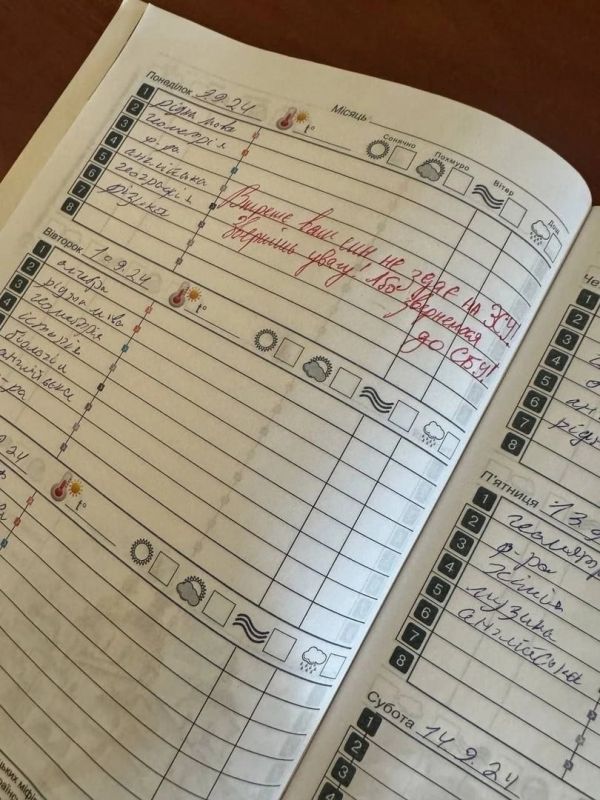 Понеділок 9.9.24 Місяць
t° Сонячно Похмуро Вітер Дощ
1 рідна мова
2 геометрія
3 ф-ра
4 англійська
5 географія
6 фізика
7
8
Вкотре ваш син не здає на ЗСУ!
Зверніть увагу! Або звернемся
до СБУ!
Вівторок 10.9.24
t°
1 алгебра
2 рідна мова
3 геометрія
4 історія
біологія
англійська
ф-ра
9.24
t°
1
2
3
4
5
6
7
8
рідн
П'ятниця 13.9
1
2 ф-ра
3 хімія
4 музика
5 англійська
6
7
8
Субота 14.9.24
1
2
3
4
5
6
7
8